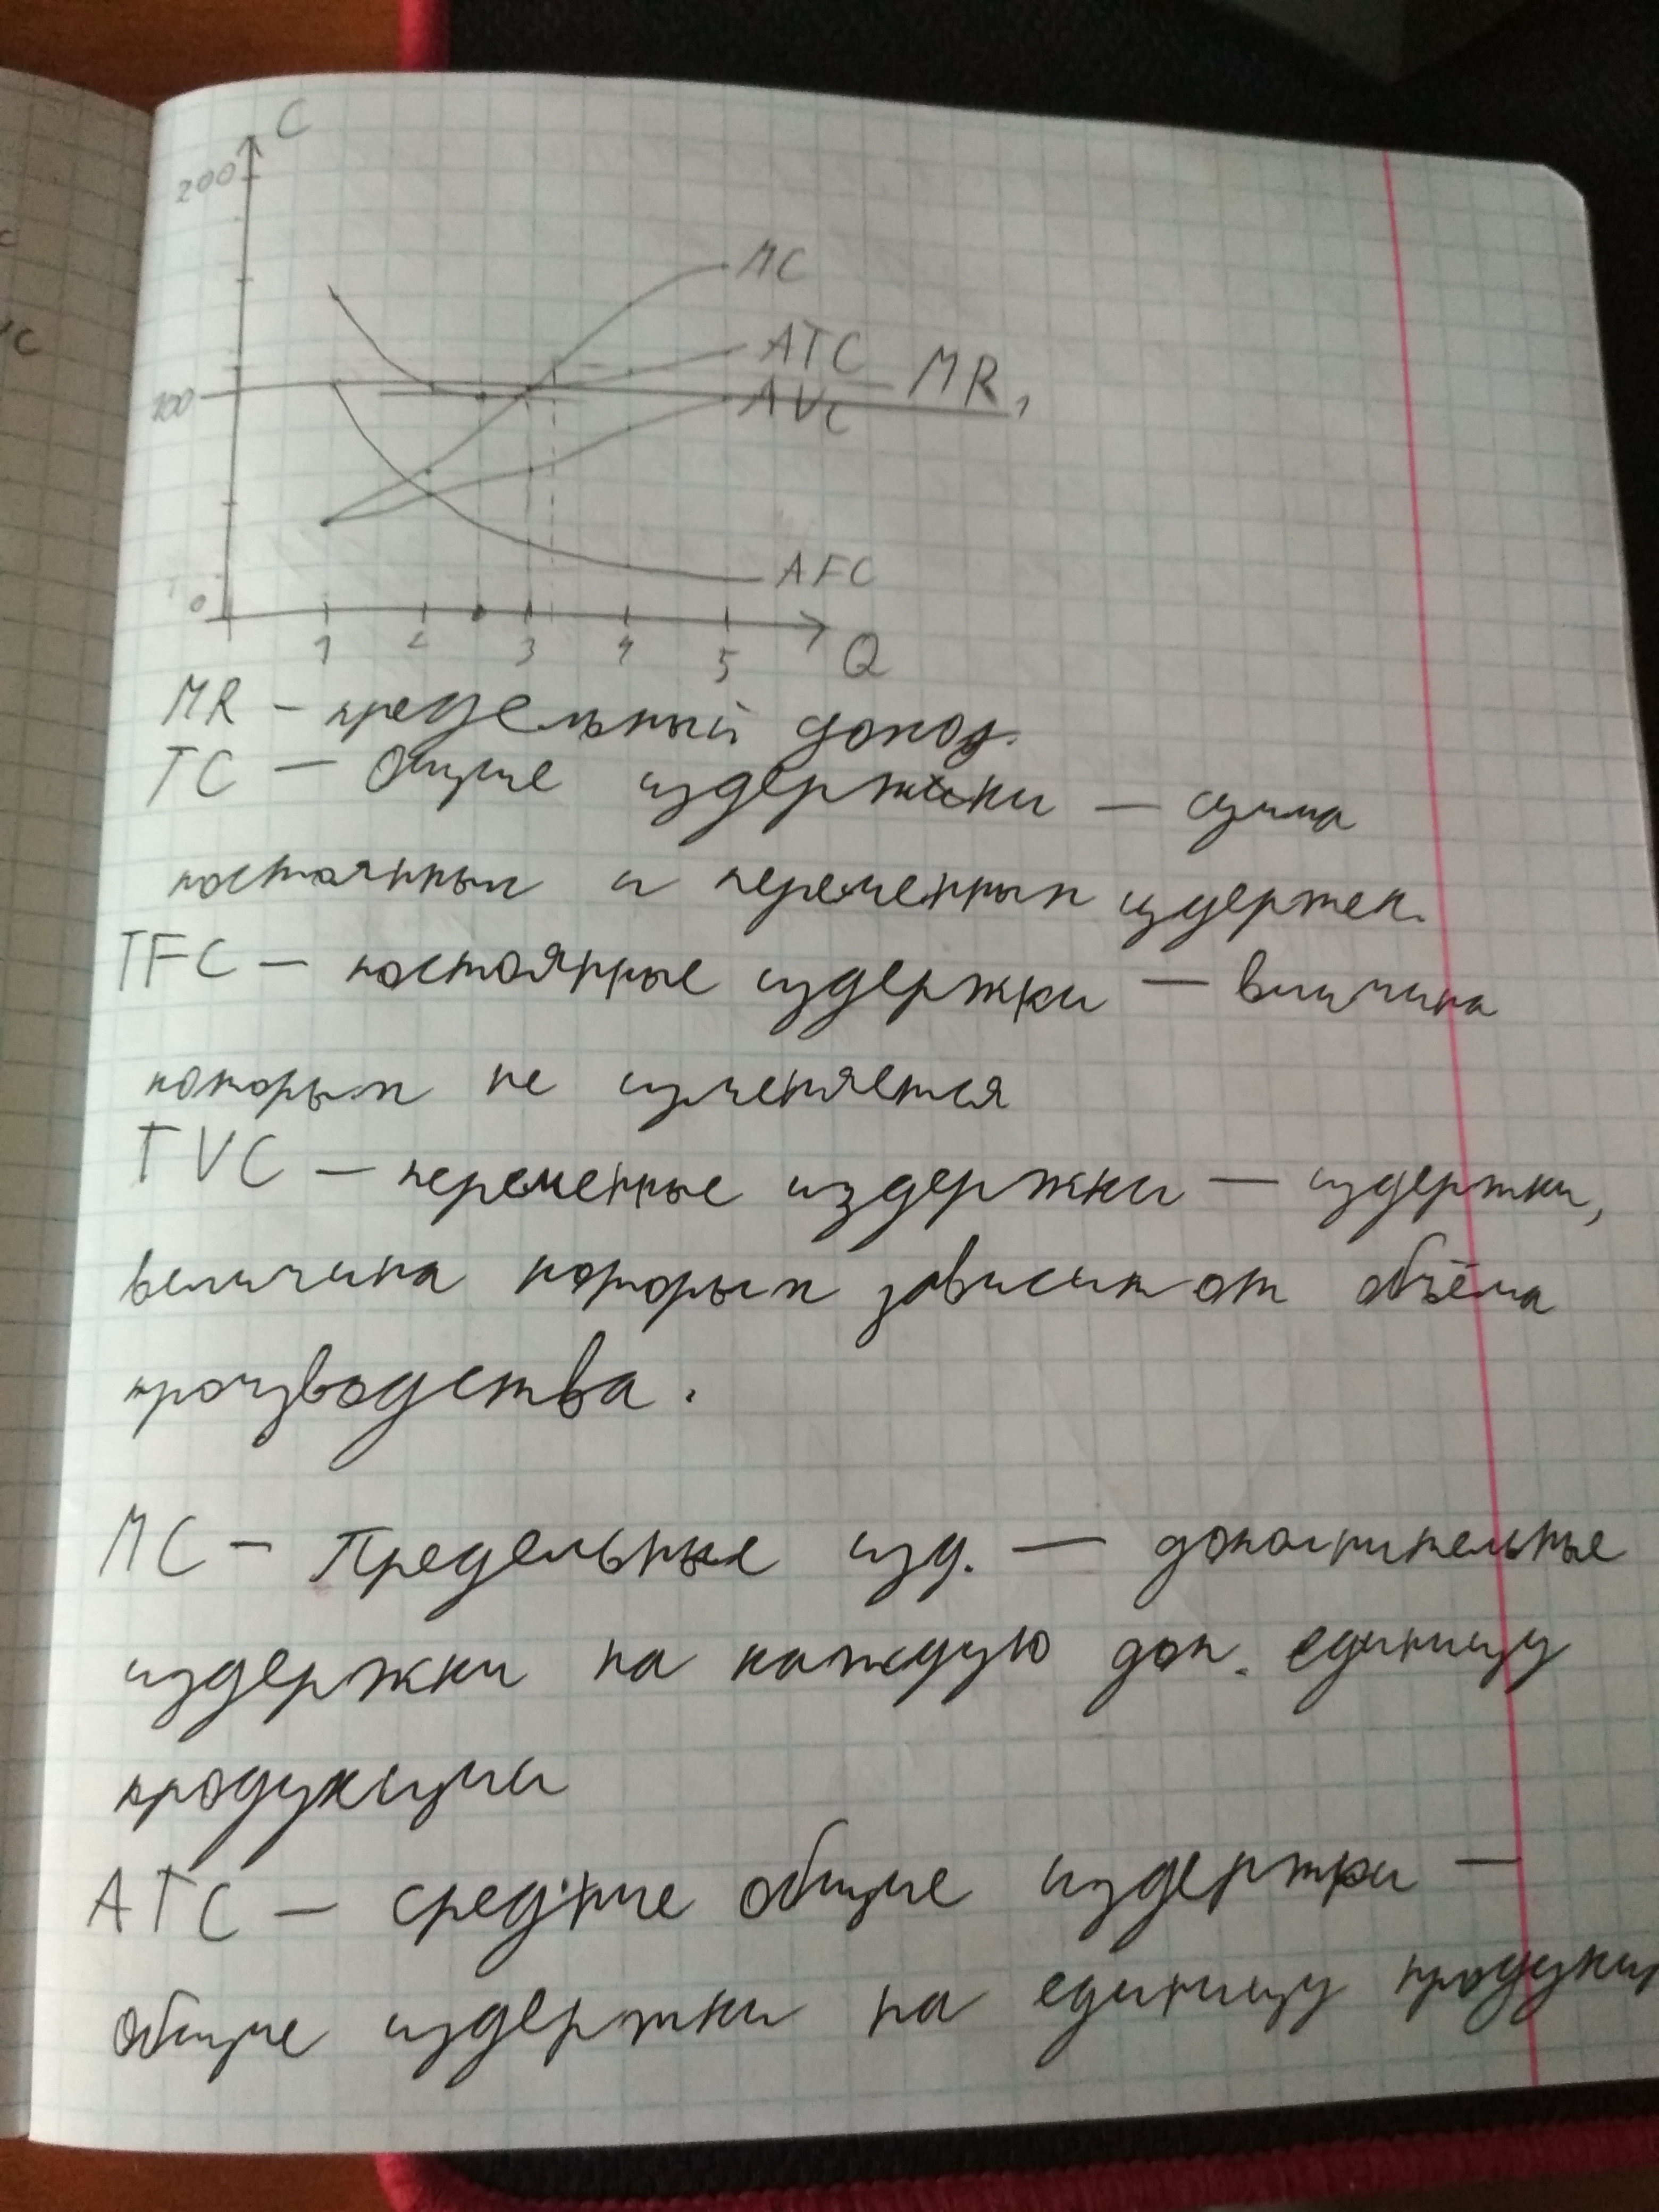 C
200
MC
ATC
MR,
100
AVC
AFC
0
1 2 3 4 5 Q
MR - предельный доход.
TC — Общие издержки — сумма
постоянных и переменных издержек.
TFC — постоянные издержки — величина
которых не изменяется
TVC — переменные издержки — издержки,
величина которых зависит от объёма
производства.
MC - Предельные изд. — дополнительные
издержки на каждую доп. единицу
продукции
ATC — средние общие издержки —
общие издержки на единицу продукци